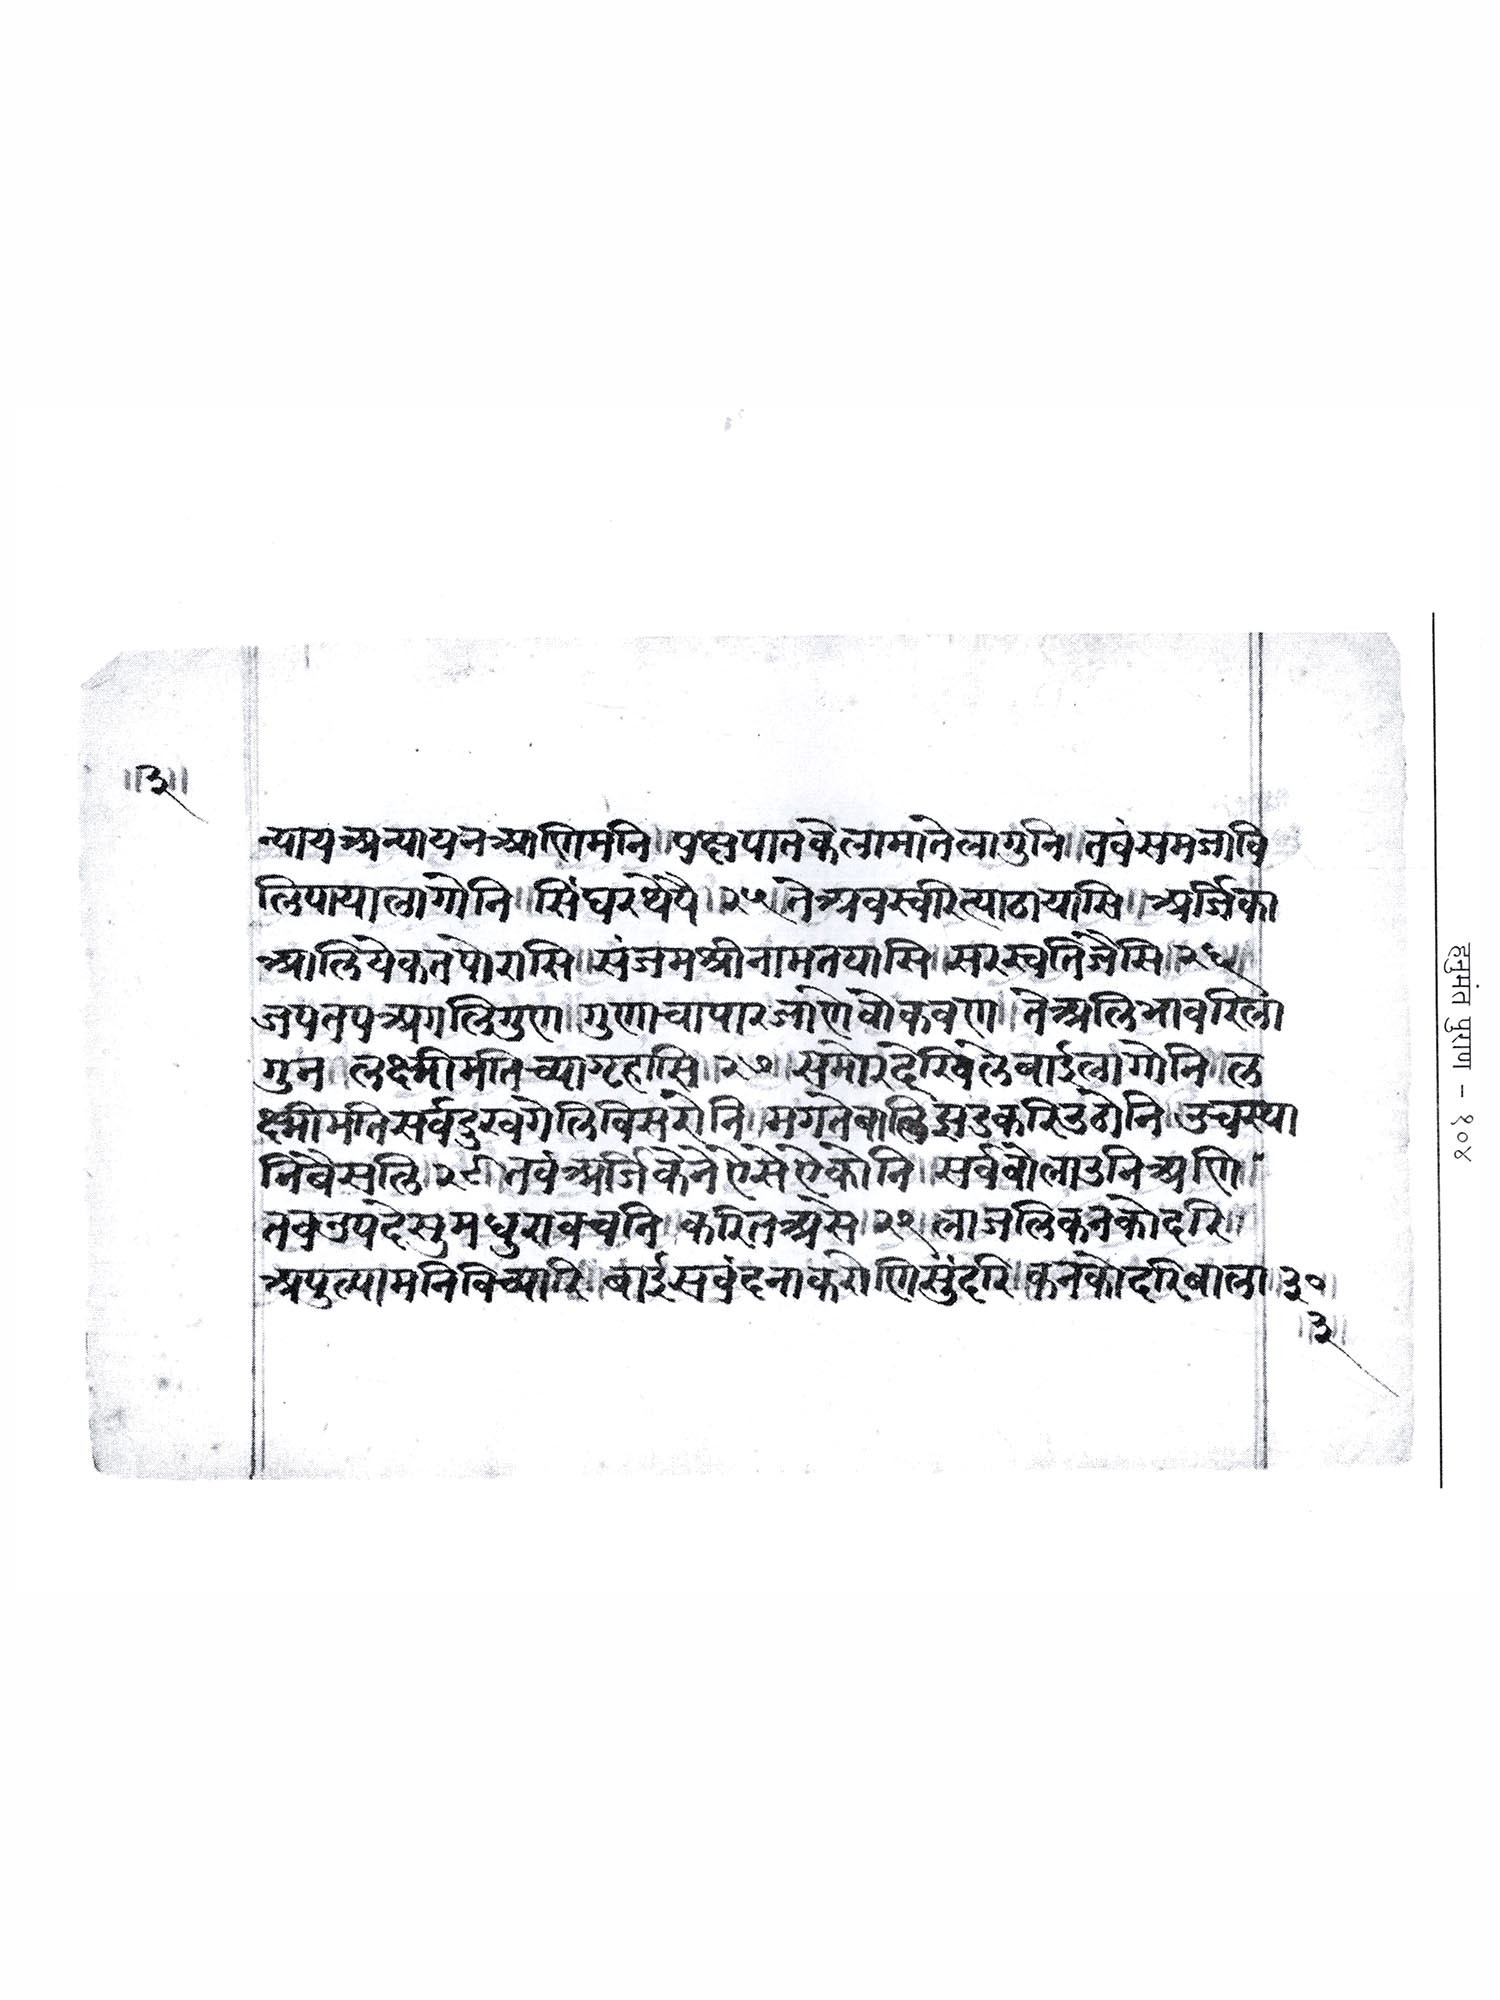 ॥३॥
न्यायअन्यायनआणिमनि॥पृछपातकेलामातेलागुनि॥तवंसमजावि
लिपायालागोनि॥सिंघरथेपै॥२५॥तेअवस्वरित्याठायासि॥अर्जिका
आलियेकतपोरासि॥संजमश्रीनामतयासि॥सरस्वतिजैसि॥२६॥
जपतपअगलिगुण॥गुणाचापारजाणेवोकवण॥तेआलिभावरिला
गुन॥लक्ष्मीमतिच्यागृहासि॥२७॥समोरदेखिलेबाईलागोनि॥ल
क्ष्मीमतिसर्वदुखगेलिविसरोनि॥मगतेबालिझडकरिउठोनि॥उचस्या
निंबैसलि॥२८॥तवंअर्जिकेनेऐसेऐकोनि॥सर्वबोलाउनिआणि
तवउपदेसुमधुरावचनि॥करितअसे॥२९॥लाजलिकनकोदरि॥
अपुल्यामनिविच्यारि॥बाईसवंदनाकरोणिसुंदरि॥कनकोदरिबाला॥३०॥
॥३॥
हनुमंत पुराण – १०४